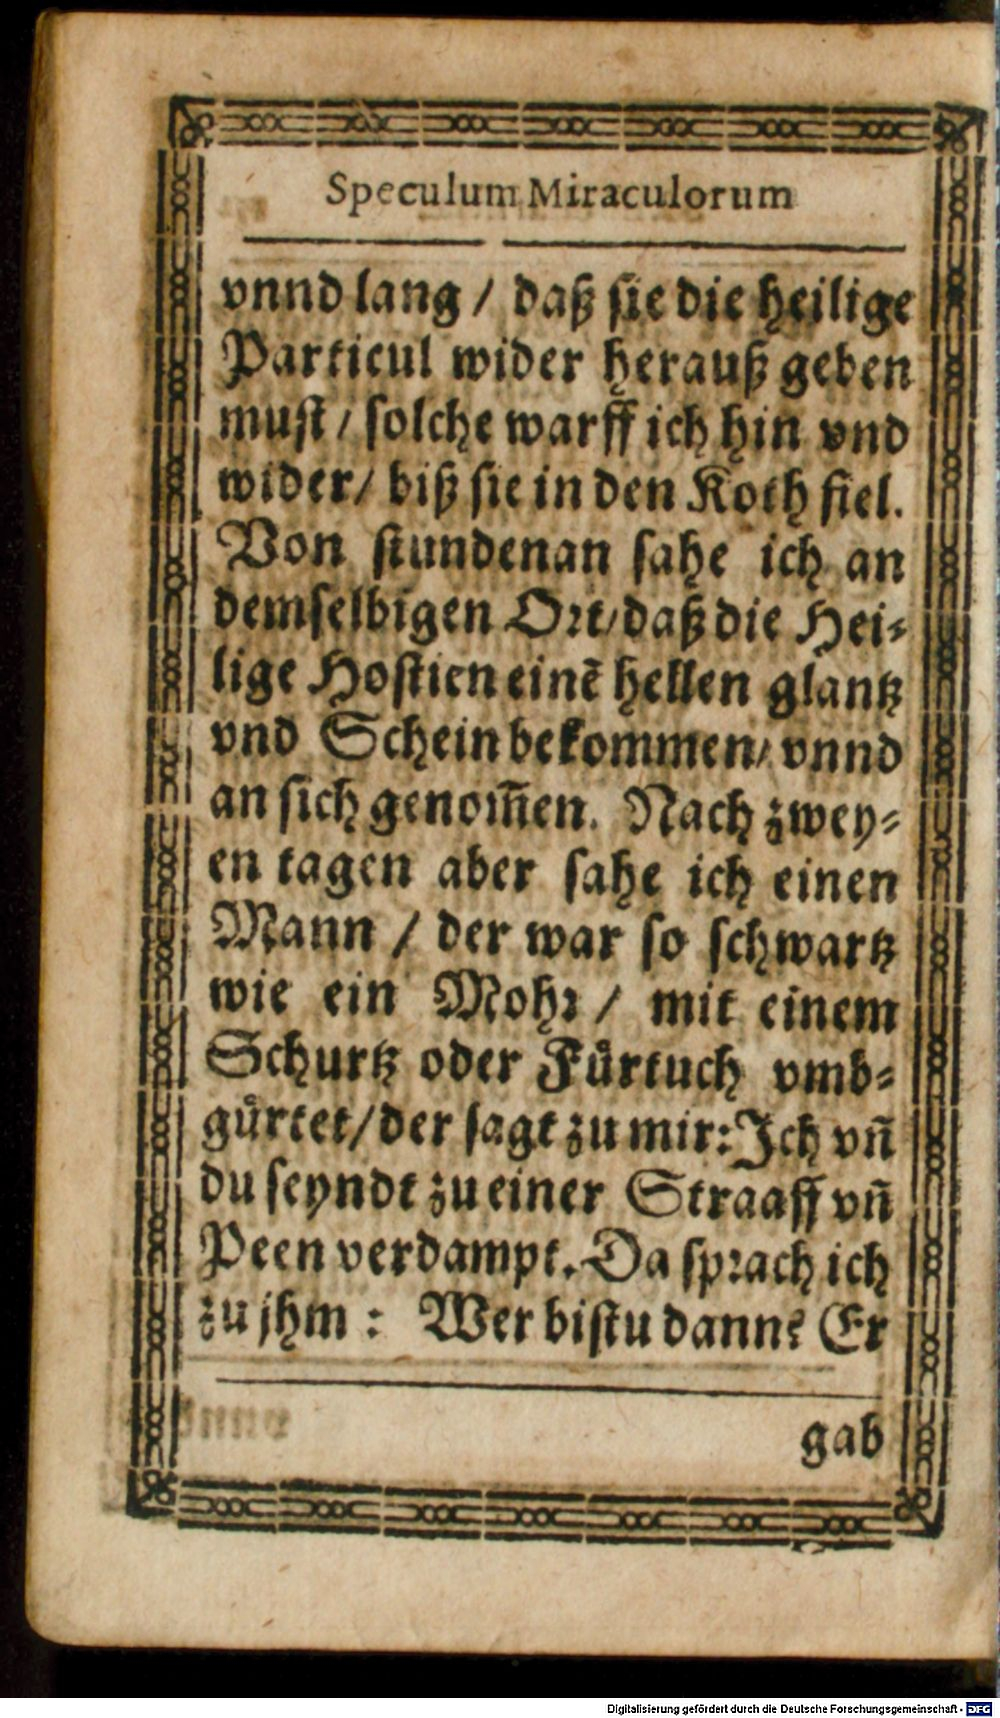 Speculum Miraculorum
vnnd lang / daß sie die heilige
Particul wider herauß geben
must / solche warff ich hin vnd
wider / biß sie in den Koth fiel.
Von stundenan sahe ich an
demselbigen Ort / daß die Hei-
lige Hostien einẽ hellen glantz
vnd Schein bekommen / vnnd
an sich genom̃en. Nach zwey-
en tagen aber sahe ich einen
Mann / der war so schwartz
wie ein Mohr / mit einem
Schurtz oder Fuͤrtuch vmb-
guͤrtet / der sagt zu mir: Ich vñ
du seyndt zu einer Straaff vñ
Peen verdampt. Da sprach ich
zu jhm : Wer bistu dann? Er
gab
Digitalisierung gefördert durch die Deutsche Forschungsgemeinschaft - DFG